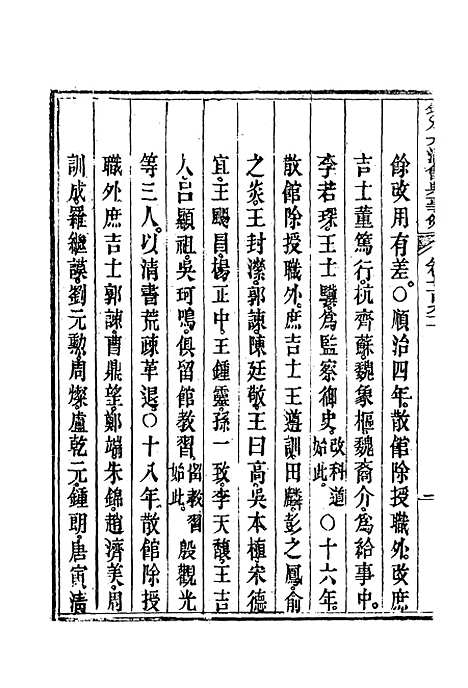 餘改用有差。○順治四年。散館除授職外。改庶
吉士董篤行。杭齊蘇。魏象樞。魏裔介。為給事中。
李若琛。王士驥。為監察御史。改科道始此。○十六年。
散館除授職外。庶吉士王遵訓。田麟。彭之鳳。俞
之炎。王封濚。郭諫。陳廷敬。王曰高。吳本植。宋德
宜。王颺昌。楊正中。王鍾靈。孫一致。李天馥。王吉
人。呂顯祖。吳珂鳴。俱留館教習。留教習始此。殷觀光
等三人。以清書荒疎革退。○十八年。散館除授
職外。庶吉士郭諫。曹鼎望。鄭端。朱錦。趙濟美。周
訓成。羅繼謨。劉元勳。周燦。盧乾元。鍾朗。唐寅清
欽定大清會典事例